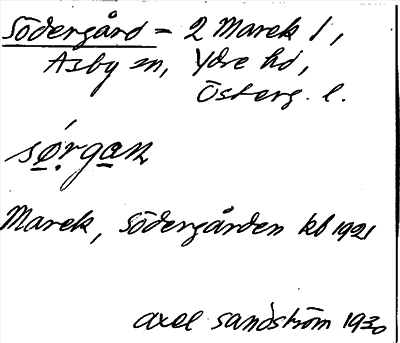 Södergård = 2 Marek 1,
Asby sn, Ydre hd,
Österg. l.
sǿrgan
Marek, Södergården kb 1921
Axel Sandström 1930